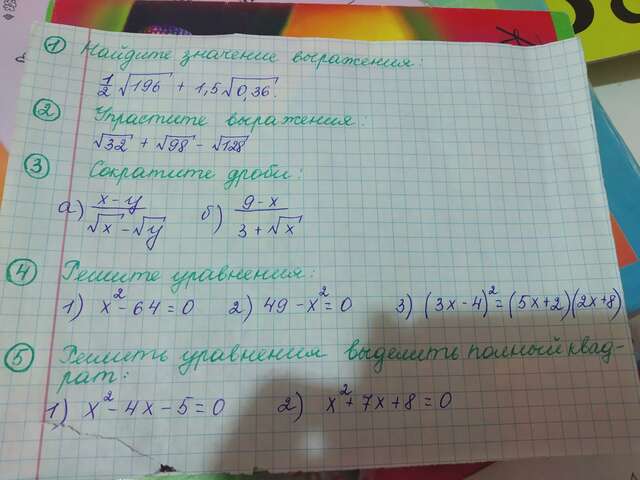 ① Найдите значение выражения:
1/2 √196 + 1,5√0,36.
② Упрастите выражения:
√32 + √98 - √128
③ Сократите дроби:
а) (x-y)/(√x - √y) б) (9-x)/(3+√x)
④ Решите уравнения:
1) x² - 64 = 0 2) 49 - x² = 0 3) (3x-4)² = (5x+2)(2x+8)
⑤ Решить уравнения выделить полный квад-
рат:
1) x² - 4x - 5 = 0 2) x² + 7x + 8 = 0